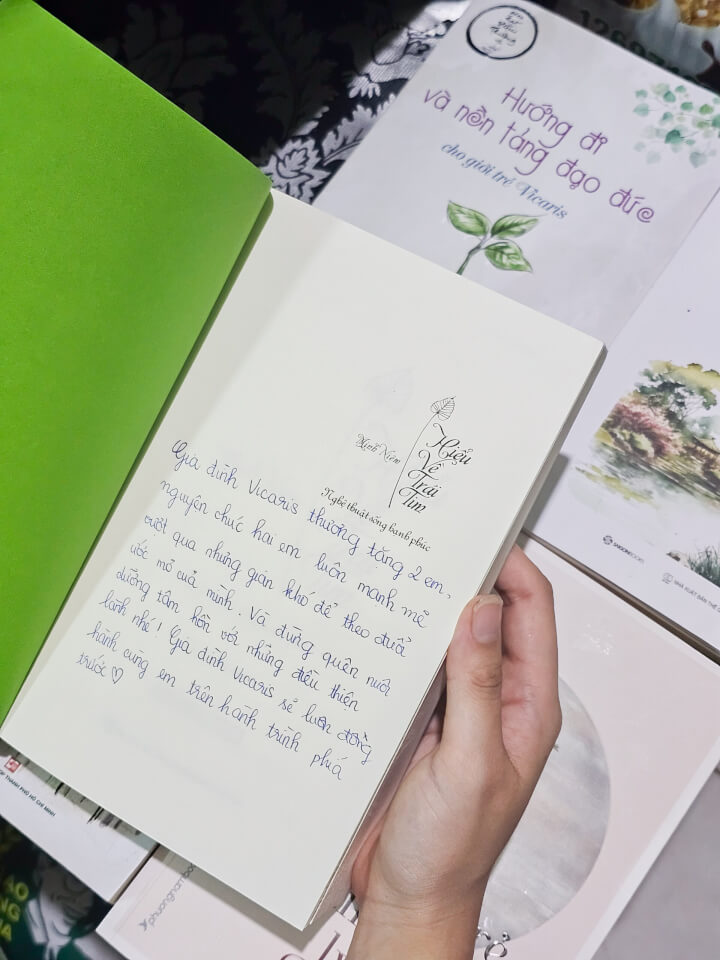 Hướng đi
và nền tảng đạo đức
cho giới trẻ Vicaris
Minh Niệm
Hiểu
Về
Trái
Tim
Nghệ thuật sống hạnh phúc
Gia đình Vicaris thương tặng 2 em,
nguyện chúc hai em luôn mạnh mẽ
vượt qua những gian khó để theo đuổi
ước mơ của mình. Và đừng quên nuôi
dưỡng tâm hồn với những điều thiện
lành nhé! Gia đình Vicaris sẽ luôn đồng
hành cùng em trên hành trình phía
trước ♡
SAIGONBOOKS
NHÀ XUẤT BẢN THẾ G
P THÀNH PHỐ HỒ CHÍ MINH
phuongnambo